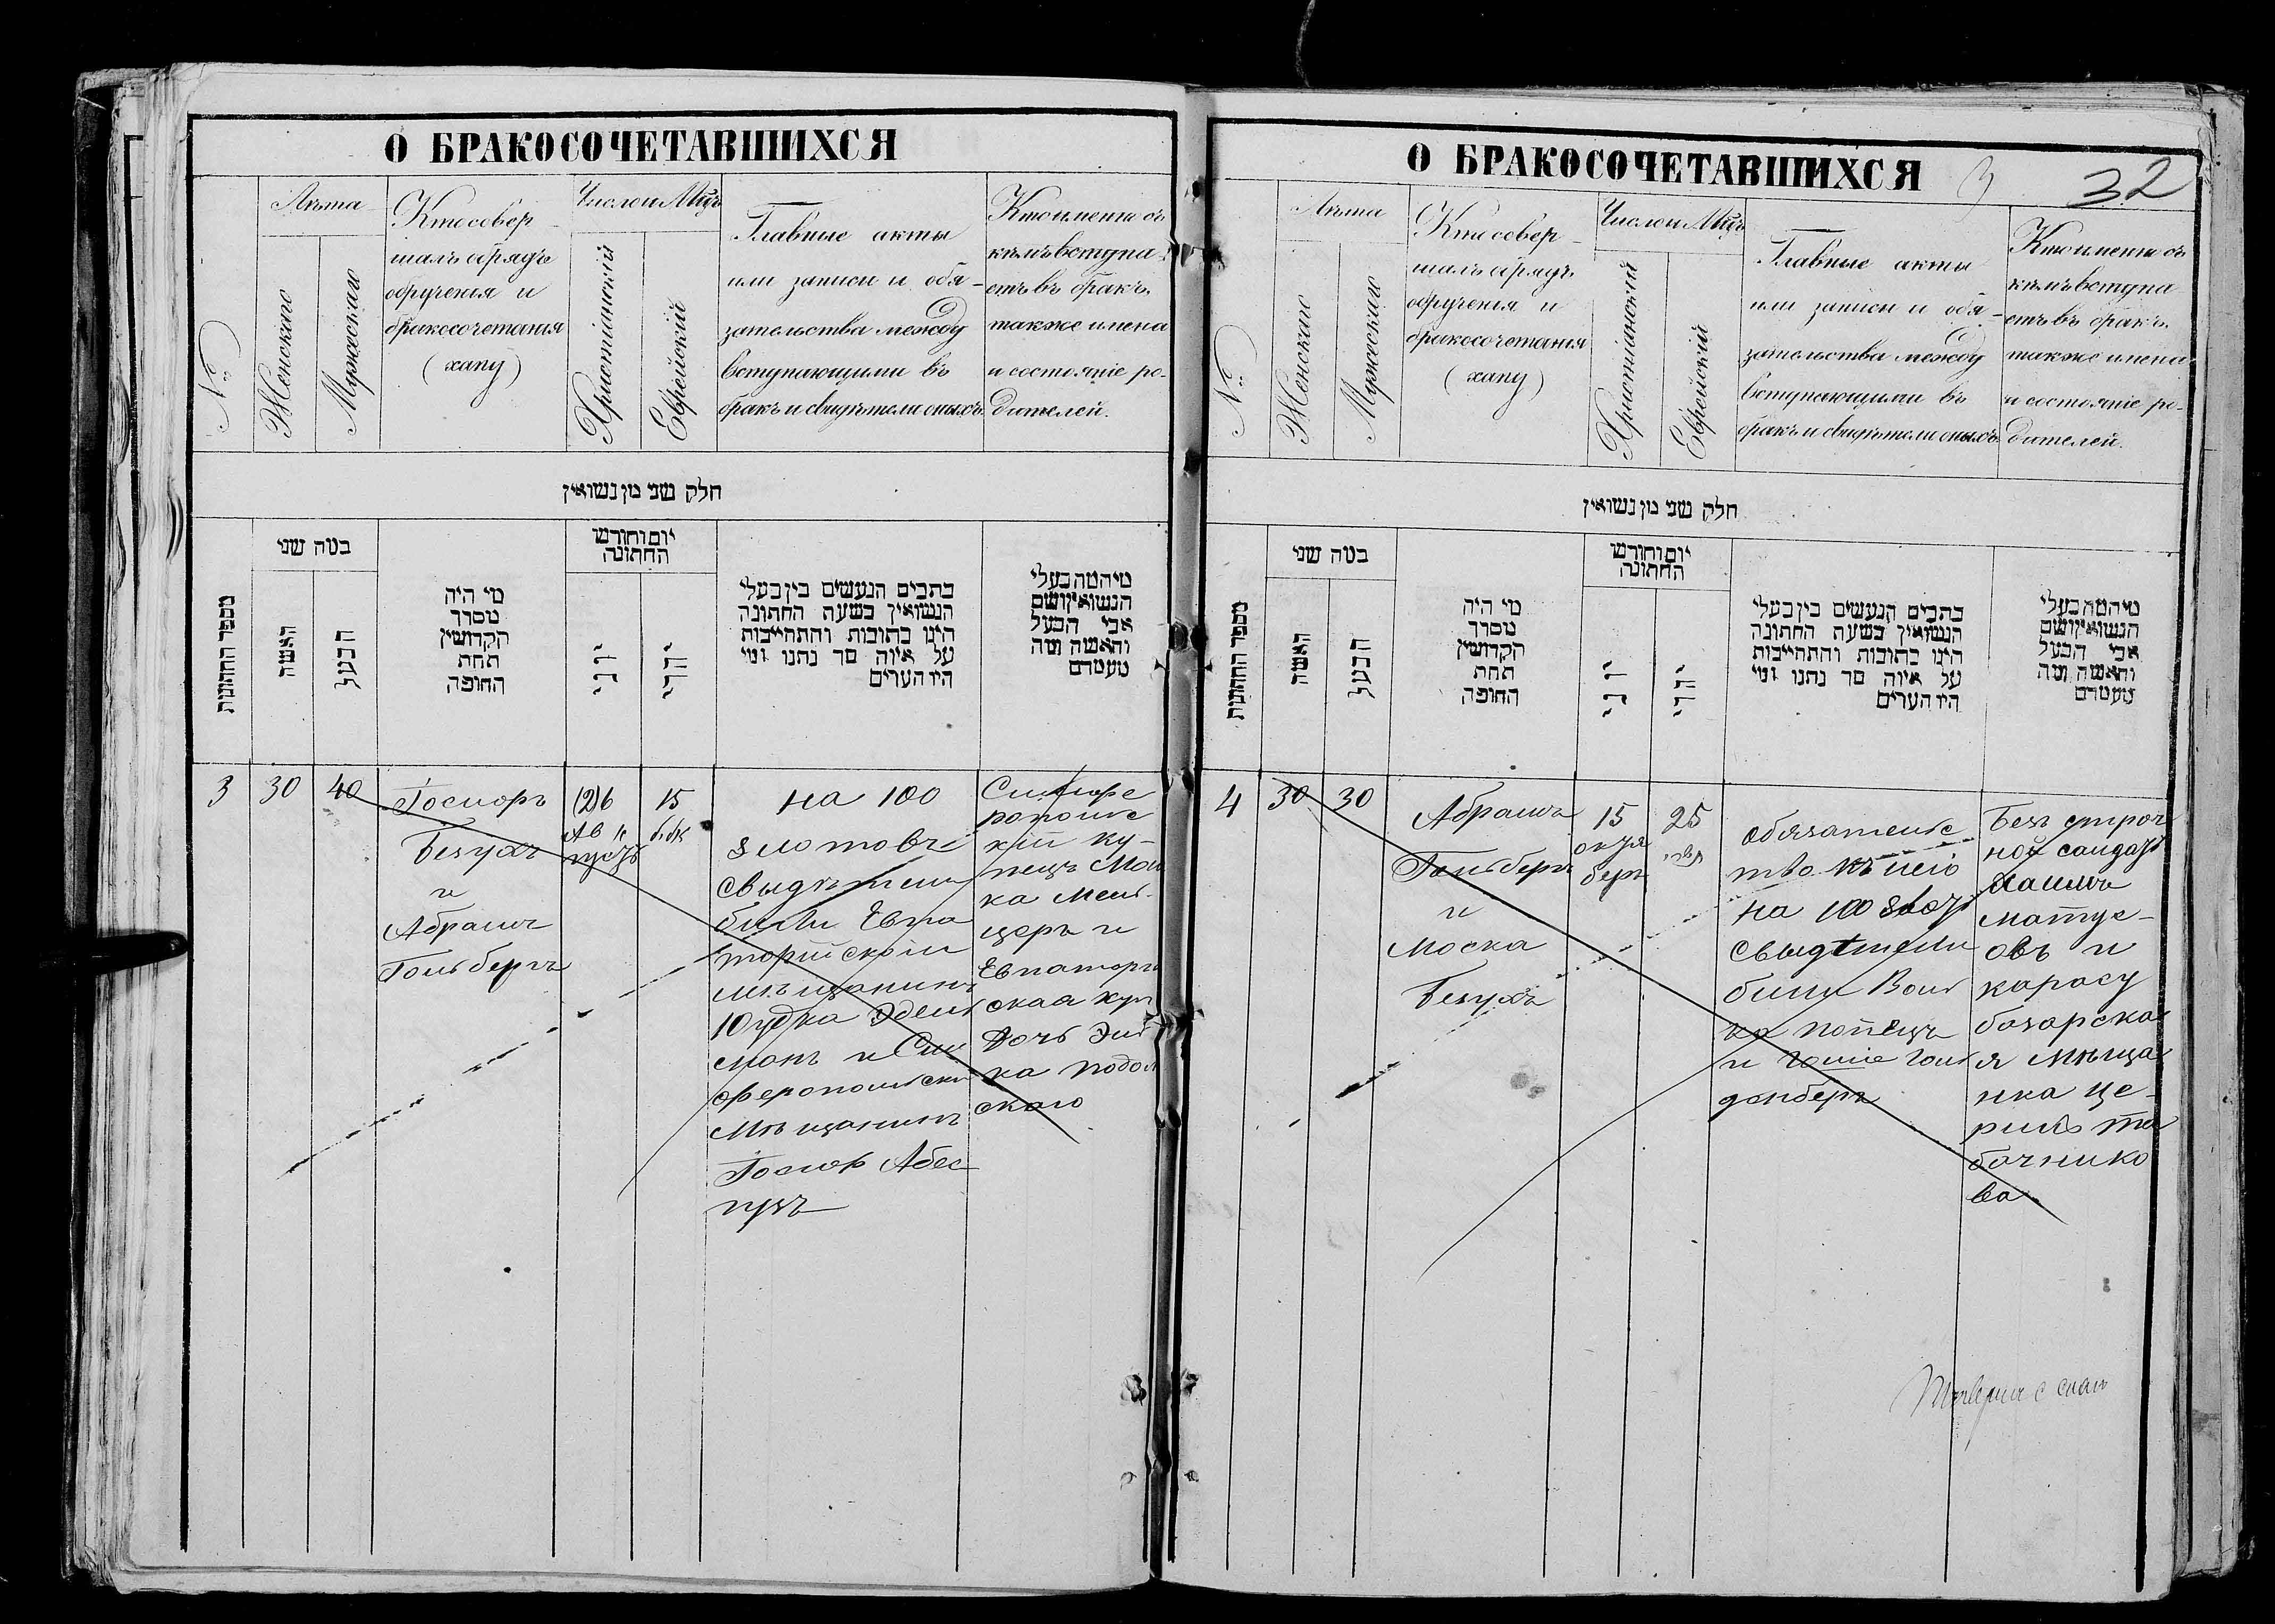 О БРАКОСОЧЕТАВШИХСЯ
№
Лѣта
Женскаго
Мужескаго
Кто совер-
шалъ обрядъ
обрученія и
бракосочетанія
(хапу)
Число и Мцъ
Христіанскій
Еврейскій
Главные акты
или записи и обя-
зательства между
вступающими въ
бракъ и свидѣтели оныхъ
Кто именно съ
кѣмъ вступа-
етъ въ бракъ,
также имена
и состояніе ро-
дителей.
חלק שני מן נשואין
מספר החתונות
כמה שני
האשה
הבעל
מי היה
מסדר
הקדושין
תחת
החופה
יום וחודש
החתונה
יוני
יודי
כתבים הנעשים בין בעלי
הנשואין בשעת החתונה
היינו כתובות והתחייבות
על איזה סך נתנו ומי
היו העדים
מי המה בעלי
הנשואין ושם
אבי הבעל
והאשה ומה
מעמדם
3
30
40
Госиоръ
Безухъ
и
Абрамъ
Гольбергъ
(2)6
Авгу
15
на 100
злотовъ
Свыдѣтели
били Евпа
торійскій
мѣщанинъ
Юдка Эдель
манъ и Сим
феропольски
Мѣщанинъ
Симфе
рополь
кій ку-
пецъ
и
Евпаторій
ская куп
дочь
О БРАКОСОЧЕТАВШИХСЯ
32
№
Лѣта
Женскаго
Мужескаго
Кто совер-
шалъ обрядъ
обрученія и
бракосочетанія
(хапу)
Число и Мцъ
Христіанскій
Еврейскій
Главные акты
или записи и обя-
зательства между
вступающими въ
бракъ и свидѣтели оныхъ
Кто именно съ
кѣмъ вступа
етъ въ бракъ,
также имена
и состояніе ро-
дителей.
חלק שני מן נשואין
מספר החתונות
כמה שני
האשה
הבעל
מי היה
מסדר
הקדושין
תחת
החופה
יום וחודש
החתונה
יוני
יודי
כתבים הנעשים בין בעלי
הנשואין בשעת החתונה
היינו כתובות והתחייבות
על איזה סך נתנו ומי
היו העדים
מי המה בעלי
הנשואין ושם
אבי הבעל
והאשה ומה
מעמדם
4
30
30
Абрамъ
Гольбергъ
и
Моска
Безухъ
15
октя
бръ
25
תשרי
обязательс
тво
на 100
Свыдѣтели
били
и
Без
солдатъ
Хаимъ
матус-
овъ и
карасу
базарска
я мѣща
нка
та
бачнико
ва